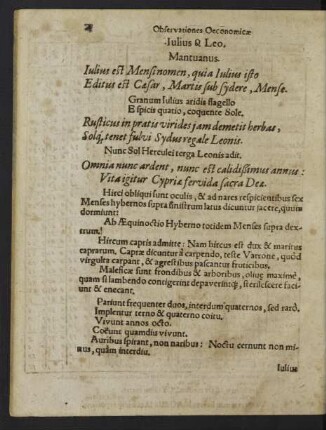 Observationes Oeconomicæ
Iulius ♌ Leo,
Mantuanus.
Iulius est Mensi nomen, quia Iulius isto
Editus est Cæsar, Martis sub sydere, Mense.
Granum Iulius aridis flagello
E spicis quatio, coquente Sole.
Rusticus in pratis virides jam demetit herbas,
Solq, tenet fulvi Sydus regale Leonis.
Nunc Sol Herculei terga Leonis adit.
Omnia nunc ardent, nunc est calidissimus annus:
Vita igitur Cypriæ fervida sacra Deæ.
Hirci obliqui sunt oculis, & ad nares respicientibus sex
Menses hybernos supra sinistrum latus dicuntur jacere, quum
dormiunt:
Ab Æquinoctio Hyberno totidem Menses supra dex-
trum!
Hircum capris admitte: Nam hircus est dux & maritus
caprarum, Capræ dicuntur à carpendo, teste Varrone, quòd
virgulta carpant, & agrestibus pascantur fruticibus.
Maleficæ sunt frondibus & arboribus, oliuę maximè,
quam si lambendo contigerint depaverintq́, sterilescere faci-
unt & enecant.
Pariunt frequenter duos, interdum quaternos, sed rarò,
Implentur terno & quaterno coitu.
Vivunt annos octo.
Coëunt quamdiu vivunt.
Auribus spirant, non naribus: Noctu cernunt non mi-
nus, quàm interdiu.
Iulius